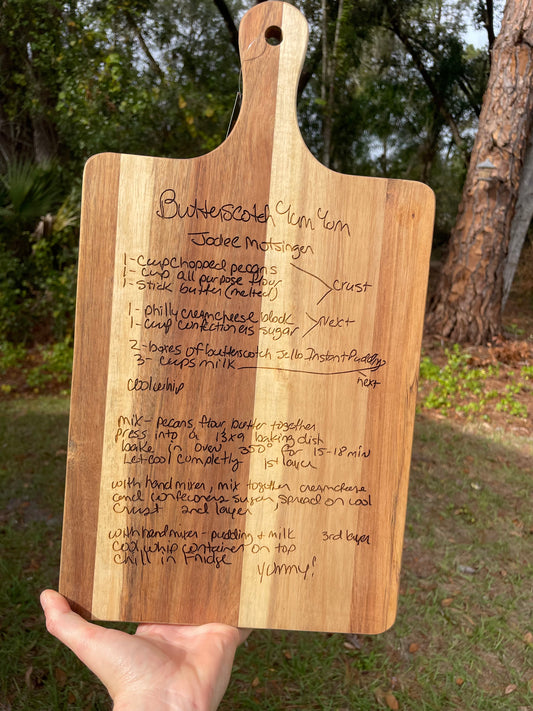 Butterscotch Yum Yum
Jodee Motsinger
1- cup chopped pecans
1- cup all purpose flour
1- stick butter (melted)
Crust
1- philly creamcheese block
1- cup confectioners sugar
Next
2- boxes of butterscotch Jello Instant Pudding
3- cups milk
next
coolwhip
mix- pecans, flour, butter together
press into a 13x9 baking dish
bake in oven 350° for 15-18 min
Let cool completly 1st layer
with hand mixer, mix together creamcheese
and confecioners sugar, spread on cool
crust 2nd layer
with hand mixer - pudding + milk 3rd layer
cool whip container on top
chill in fridge
yummy!